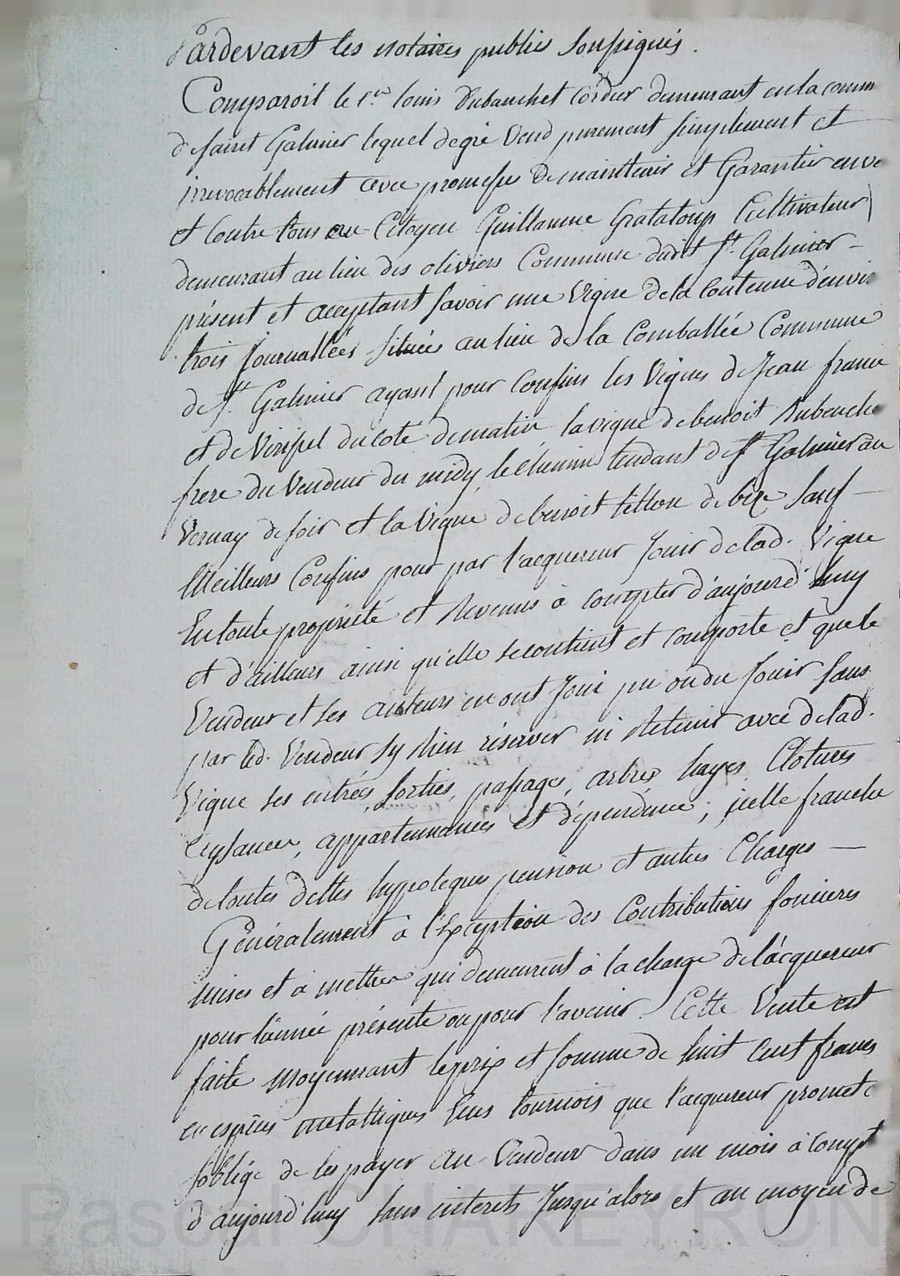 Pardevant les notaires publics soussignés.
Comparoit le Cen louis Dubanchet Cordier demeurant en la comm
de saint Galmier lequel de gré vend purement simplement et
irrevocablement avec promesse de maintenir et Garantir enve
et contre tous au Citoyen Guillaume Grataloup Cultivateur
demeurant au lieu des oliviers Commune dudit St. Galmier
présent et acceptant savoir une Vigne de la Contenue d'envi
trois Journallées située au lieu de la Comballée Commune
de St. Galmier ayant pour Confins les Vignes de Jean france
et de du coté de matin, la vigne de benoit Dubanche
frere du Vendeur du midy, le chemin tendant de St Galmier au
Vernay de soir et la Vigne de benoit de bize sauf
Meilleurs Confins pour par l'acquereur Jouir de lad. Vigne
En toute propriété et Revenus à compter d'aujourd'huy
et d'ailleurs ainsi qu'elle se contient et comporte et que le
Vendeur et ses auteurs en ont Joui pu ou du Jouir sans
par led. Vendeur sy Rien réserver ni Retenir avec de lad.
Vigne ses entrées, sorties, passages, arbres hayes, Clotures
aysances, appartenances et dépendence; icelle franche
de toutes dettes hypoteques pension et autres Charges
Généralement à l'Exception des Contributions foncieres
mises et à mettre qui demeurent à la charge de l'acquereur
pour l'année présente ou pour l'avenir. Cette Vente est
faite moyennant le prix et somme de huit Cent francs
en espèces metalliques tournois que l'acquereur promet
s'oblige de les payer au Vendeur dans un mois à compt
d'aujourd'huy sans interets Jusqu'alors et au moyen de
Pascal CHAREYRON